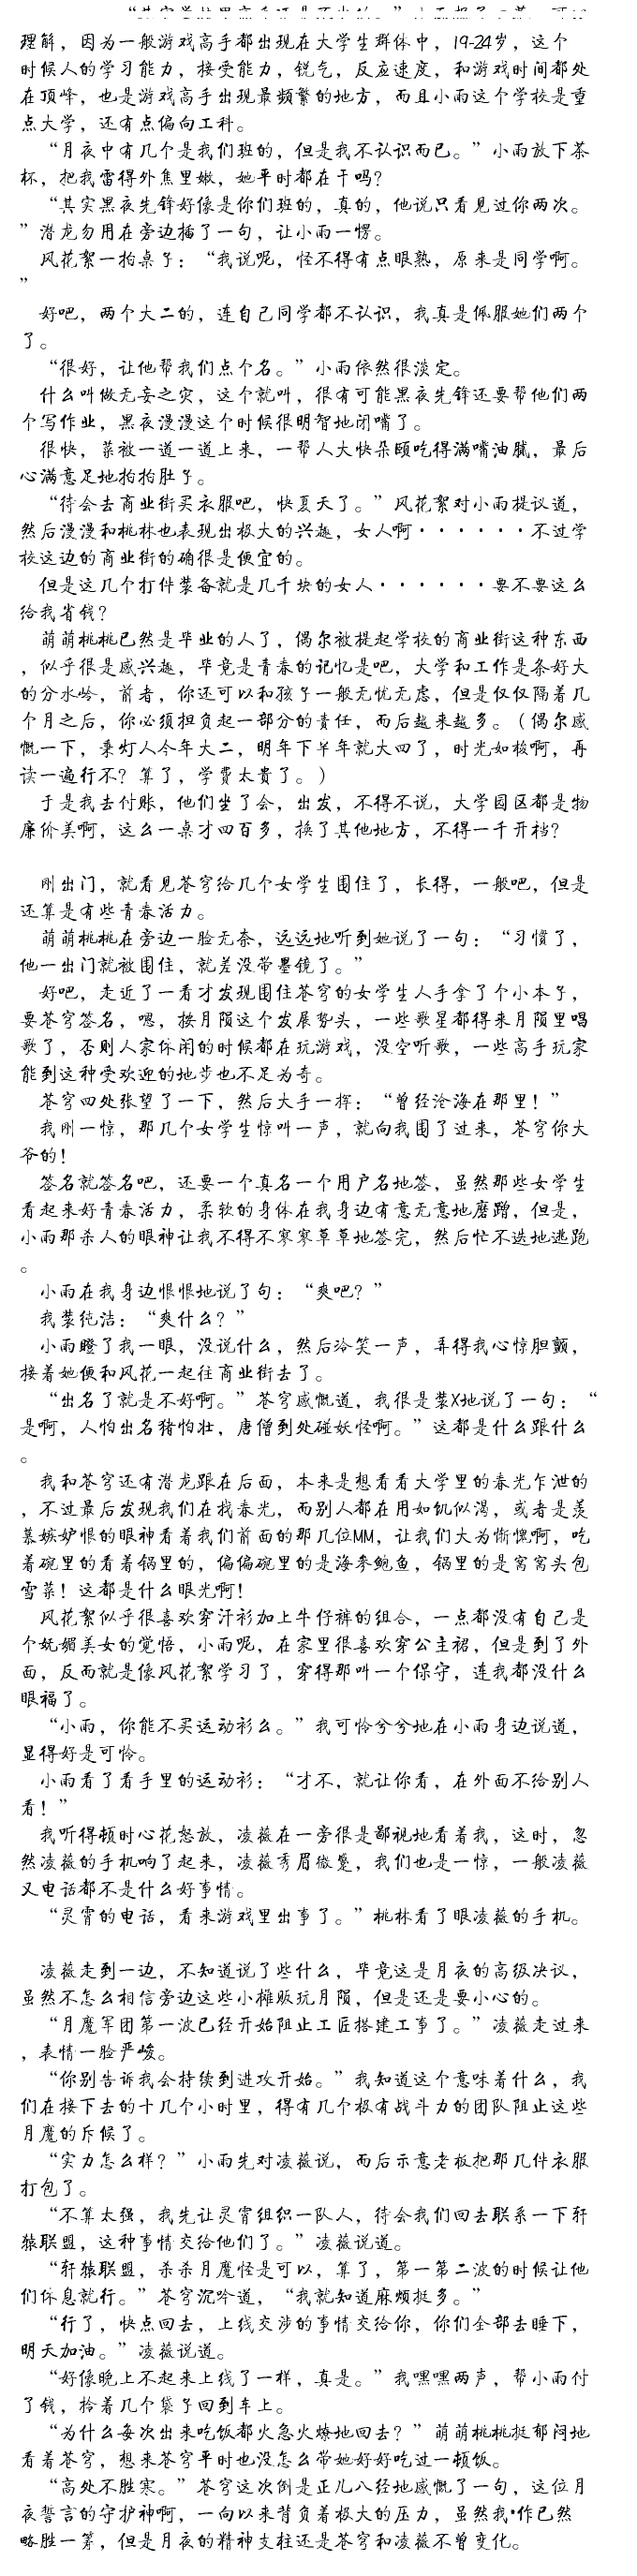 理解，因为一般游戏高手都出现在大学生群体中，19-24岁，这个
时候人的学习能力，接受能力，锐气，反应速度，和游戏时间都处
在顶峰，也是游戏高手出现最频繁的地方，而且小雨这个学校是重
点大学，还有点偏向工科。
“月夜中有几个是我们班的，但是我不认识而已。”小雨放下茶
杯，把我雷得外焦里嫩，她平时都在干吗？
“其实黑夜先锋好像是你们班的，真的，他说只看见过你两次。
”潜龙勿用在旁边插了一句，让小雨一愣。
风花絮一拍桌子：“我说呢，怪不得有点眼熟，原来是同学啊。
”
好吧，两个大二的，连自己同学都不认识，我真是佩服她们两个
了。
“很好，让他帮我们点个名。”小雨依然很淡定。
什么叫做无妄之灾，这个就叫，很有可能黑夜先锋还要帮他们两
个写作业，黑夜漫漫这个时候很明智地闭嘴了。
很快，菜被一道一道上来，一帮人大快朵颐吃得满嘴油腻，最后
心满意足地拍拍肚子。
“待会去商业街买衣服吧，快夏天了。”风花絮对小雨提议道，
然后漫漫和桃林也表现出极大的兴趣，女人啊······不过学
校这边的商业街的确很是便宜的。
但是这几个打件装备就是几千块的女人······要不要这么
给我省钱？
萌萌桃桃已然是毕业的人了，偶尔被提起学校的商业街这种东西
，似乎很是感兴趣，毕竟是青春的记忆是吧，大学和工作是条好大
的分水岭，前者，你还可以和孩子一般无忧无虑，但是仅仅隔着几
个月之后，你必须担负起一部分的责任，而后越来越多。（偶尔感
慨一下，乘灯人今年大二，明年下半年就大四了，时光如梭啊，再
读一遍行不？算了，学费太贵了。）
于是我去付账，他们坐了会，出发，不得不说，大学园区都是物
廉价美啊，这么一桌才四百多，换了其他地方，不得一千开档？
刚出门，就看见苍穹给几个女学生围住了，长得，一般吧，但是
还算是有些青春活力。
萌萌桃桃在旁边一脸无奈，远远地听到她说了一句：“习惯了，
他一出门就被围住，就差没带墨镜了。”
好吧，走近了一看才发现围住苍穹的女学生人手拿了个小本子，
要苍穹签名，嗯，按月陨这个发展势头，一些歌星都得来月陨里唱
歌了，否则人家休闲的时候都在玩游戏，没空听歌，一些高手玩家
能到这种受欢迎的地步也不足为奇。
苍穹四处张望了一下，然后大手一挥：“曾经沧海在那里！”
我刚一惊，那几个女学生惊叫一声，就向我围了过来，苍穹你大
爷的！
签名就签名吧，还要一个真名一个用户名地签，虽然那些女学生
看起来好青春活力，柔软的身体在我身边有意无意地磨蹭，但是，
小雨那杀人的眼神让我不得不寥寥草草地签完，然后忙不迭地逃跑
。
小雨在我身边恨恨地说了句：“爽吧？”
我装纯洁：“爽什么？”
小雨瞪了我一眼，没说什么，然后冷笑一声，弄得我心惊胆颤，
接着她便和风花一起往商业街去了。
“出名了就是不好啊。”苍穹感慨道，我很是装X地说了一句：“
是啊，人怕出名猪怕壮，唐僧到处碰妖怪啊。”这都是什么跟什么
。
我和苍穹还有潜龙跟在后面，本来是想看看大学里的春光乍泄的
，不过最后发现我们在找春光，而别人都在用如饥似渴，或者是羡
慕嫉妒恨的眼神看着我们前面的那几位MM，让我们大为惭愧啊，吃
着碗里的看着锅里的，偏偏碗里的是海参鲍鱼，锅里的是窝窝头包
雪菜！这都是什么眼光啊！
风花絮似乎很喜欢穿汗衫加上牛仔裤的组合，一点都没有自己是
个妩媚美女的觉悟，小雨呢，在家里很喜欢穿公主裙，但是到了外
面，反而就是像风花絮学习了，穿得那叫一个保守，连我都没什么
眼福了。
“小雨，你能不买运动衫么。”我可怜兮兮地在小雨身边说道，
显得好是可怜。
小雨看了看手里的运动衫：“才不，就让你看，在外面不给别人
看！”
我听得顿时心花怒放，凌薇在一旁很是鄙视地看着我，这时，忽
然凌薇的手机响了起来，凌薇秀眉微蹙，我们也是一惊，一般凌薇
又电话都不是什么好事情。
“灵霄的电话，看来游戏里出事了。”桃林看了眼凌薇的手机。
凌薇走到一边，不知道说了些什么，毕竟这是月夜的高级决议，
虽然不怎么相信旁边这些小摊贩玩月陨，但是还是要小心的。
“月魔军团第一波已经开始阻止工匠搭建工事了。”凌薇走过来
，表情一脸严峻。
“你别告诉我会持续到进攻开始。”我知道这个意味着什么，我
们在接下去的十几个小时里，得有几个极有战斗力的团队阻止这些
月魔的斥候了。
“实力怎么样？”小雨先对凌薇说，而后示意老板把那几件衣服
打包了。
“不算太强，我先让灵霄组织一队人，待会我们回去联系一下轩
辕联盟，这种事情交给他们了。”凌薇说道。
“轩辕联盟，杀杀月魔怪是可以，算了，第一第二波的时候让他
们休息就行。”苍穹沉吟道，“我就知道麻烦挺多。”
“行了，快点回去，上线交涉的事情交给你，你们全部去睡下，
明天加油。”凌薇说道。
“好像晚上不起来上线了一样，真是。”我嘿嘿两声，帮小雨付
了钱，拎着几个袋子回到车上。
“为什么每次出来吃饭都火急火燎地回去？”萌萌桃桃挺郁闷地
看着苍穹，想来苍穹平时也没怎么带她好好吃过一顿饭。
“高处不胜寒。”苍穹这次倒是正儿八经地感慨了一句，这位月
夜誓言的守护神啊，一向以来背负着极大的压力，虽然我·作已然
略胜一筹，但是月夜的精神支柱还是苍穹和凌薇不曾变化。